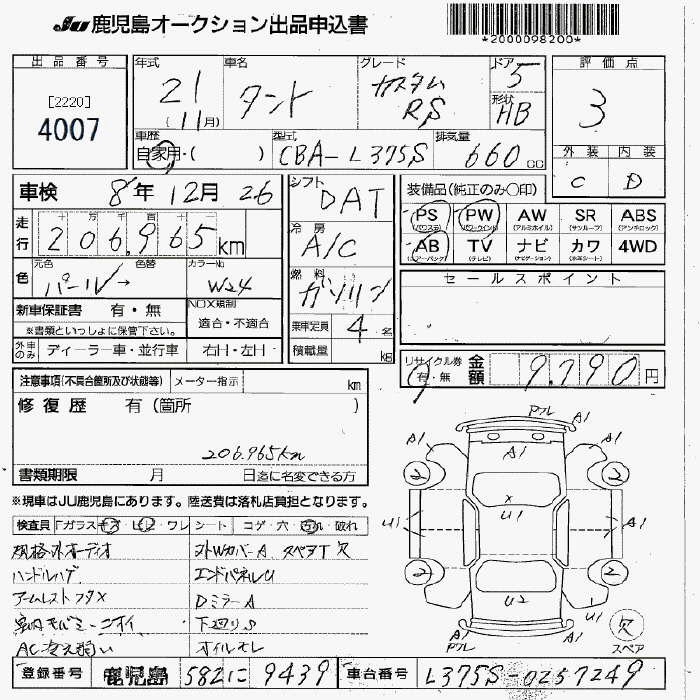 JU 鹿児島オークション出品申込書
*2000098200*
出品番号 年式 車名 グレード ドア 評価点
[2220]
4007
21 (11月) タント カスタム RS 5 形状 HB 3
車歴 型式 排気量 外装 内装
自家用・( ) CBA-L375S 660 CC C D
車検 8年12月26 シフト DAT 装備品(純正のみ○印)
走行 十 万 千 百 十 206,965km 冷房 A/C
PS (パワステ) PW (パワーウインド) AW (アルミホイル) SR (サンルーフ) ABS (アンチロック)
AB (エアーバック) TV (テレビ) ナビ (ナビゲーション) カワ (本革シート) 4WD
色 元色 色替 カラーNo
パール→ W24 燃料 ガソリン
セールスポイント
新車保証書 有・無 NOX規制 適合・不適合
※書類といっしょに保管下さい。
乗車定員 4名
外車のみ ディーラー車・並行車 右H・左H 積載量 kg
リサイクル券 有・無 金額 9,790円
注意事項(不具合箇所及び状態等) メーター指示 km
修復歴 有(箇所 )
206,965km
書類期限 月 日迄に名変できる方
※現車はJU鹿児島にあります。陸送費は落札店負担となります。
検査員 Fガラス キズ・ヒビ・ワレ シート コゲ・穴・汚れ・破れ
規格外オーディオ 外Wカバー A スペアT欠
ハンドルハゲ エンドパネルU
アームレストフタX DミラーA
室内モノミミ・ニオイ 下廻りS
AC冷え弱い オイルモレ
Pワレ A1
A1 A1 A1
2 2
X
U1 U1 A1
2 2
U2 U1
A1 Pワレ A1
欠
スペア
登録番号 鹿児島 582に 9439 車台番号 L375S-0257249